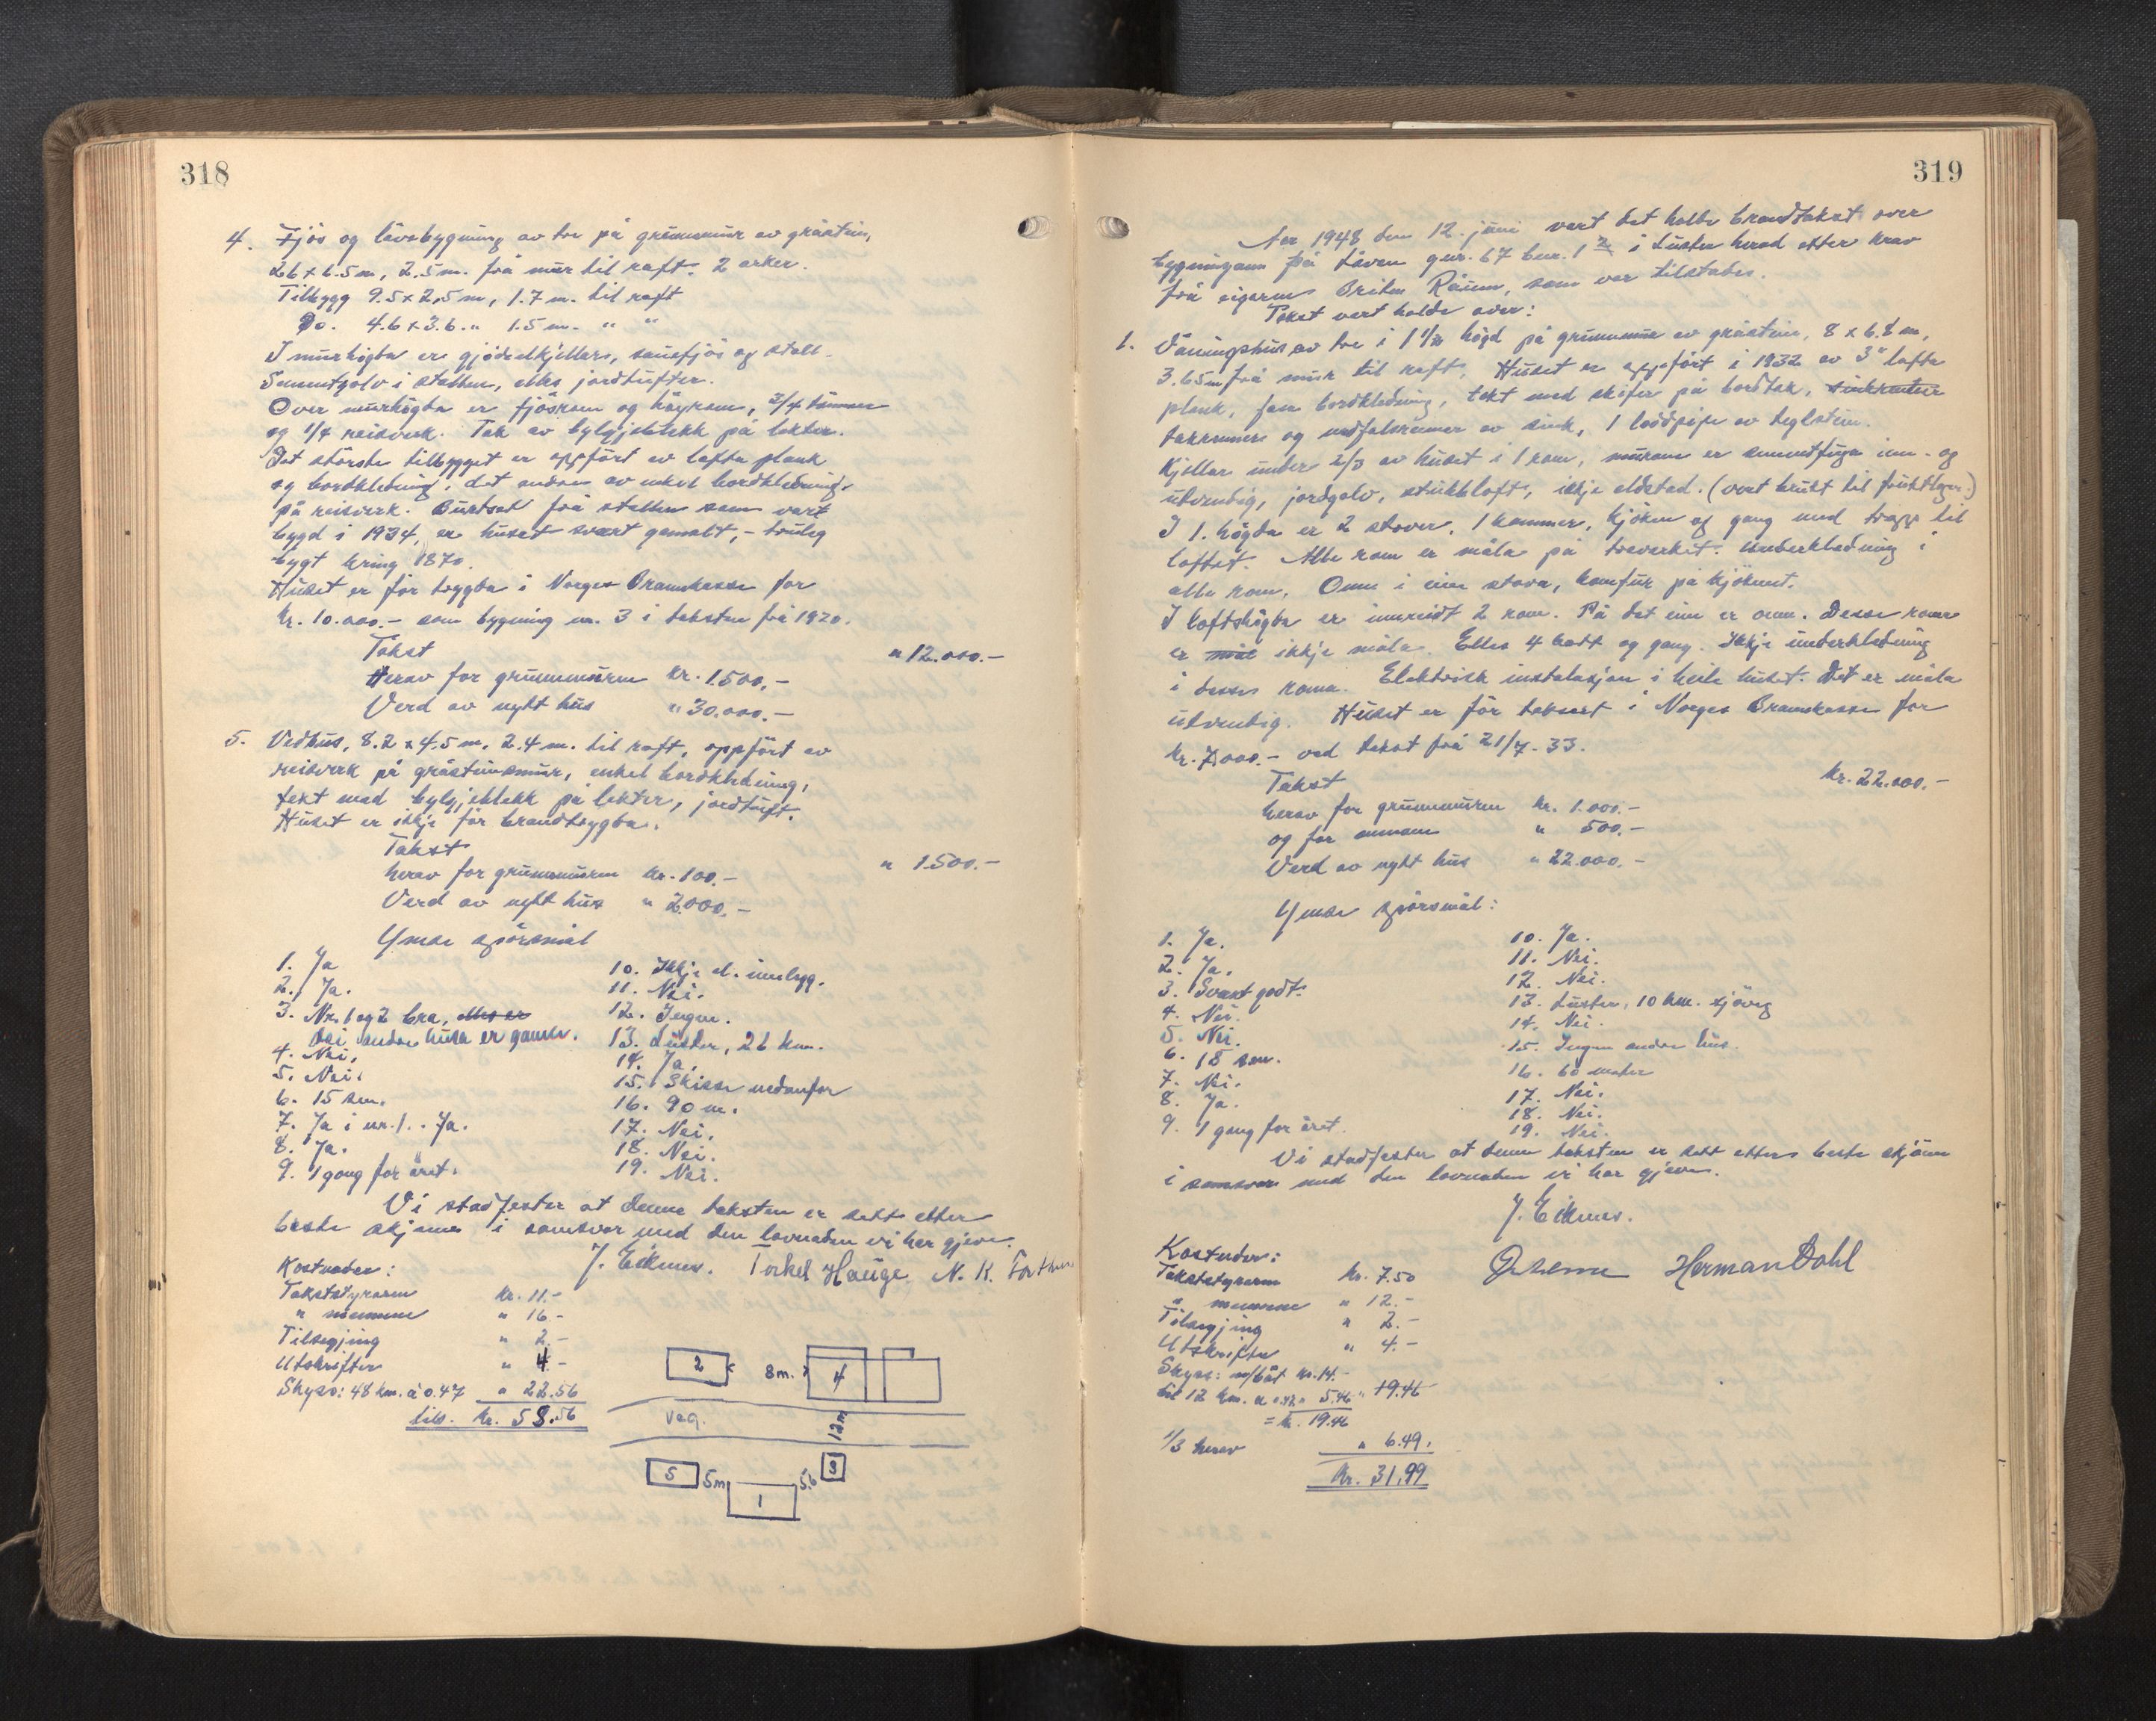 318
4. Fjös og lövebygning av tre på grunnmur av gråstein,
26 x 6.5 m, 2.5 m. frå mur til raft. 2 arker.
Tilbygg 9.5 x 2,5 m, 1.7 m. til raft
Do. 4.6 x 3.6 " 1.5 m. " "
I murhögda er gjödselkjellar, sauefjös og stall.
Sementgolv i stallen, elles jordtufter.
Over murhögda er fjösrom og höyrom, 3/4 tömmer
og 1/4 reisverk. Tak av bylgjeblekk på lekter.
Det största tilbygget er oppfört av lafta plank
og bordkledning, det andre av enkel bordkledning
på reisverk. Burtset frå stallen som vart
bygd i 1934, er huset svært gamalt, - truleg
bygt kring 1870.
Huset er för trygda i Norges Brannkasse for
kr. 10.000.- som bygning nr. 3 i taksten frå 1920.
Takst " 12.000.-
Herav for grunnmuren kr. 1.500,-
Verd av nytt hus " 30.000.-
5. Vedhus, 8.2 x 4.5 m, 2.4 m. til raft, oppfört av
reisverk på gråsteinsmur, enkel bordkledning,
tekt med bylgjeblekk på lekter, jordtuft.
Huset er ikkje för brandtrygda.
Takst " 1500.-
herav for grunnmuren kr. 100.-
Verd av nytt hus " 2000.-
Ymse spörsmål
1. Ja
2. Ja.
3. Nr. 1 og 2 bra, elles er
dei andre husa er gamle.
4. Nei,
5. Nei.
6. 15 sm.
7. Ja i nr. 1. . Ja.
8. Ja.
9. 1 gong for året.
10. Ikkje el. innlegg.
11. Nei.
12. Ingen.
13. Luster, 26 km.
14. Ja.
15. Skisse nedanfor
16. 90 m.
17. Nei.
18. Nei.
19. Nei.
Vi stadfester at denne taksten er sett etter
beste skjønn i samsvar med den lovnaden vi har gjeve.
J. Eikum. Torkel Hauge. N. K. Forthun
Kostnader:
Takststyraren kr. 11.-
" mennene " 16.-
Tilseging " 2.-
Utskrifter " 4.-
Skyss: 48 km. à 0.47 " 22.56
tils. kr. 58.56
2 8m. 4
veg. 12m
5 5m 1 5.6 3
319
Aar 1948 den 12. juni vart det halde brandtakst over
bygningane på Låven gnr. 67 bnr. 1 2 i Luster herad etter krav
frå eigaren Briten Råum, som var tilstades.
Takst vert halde over:
1. Våningshus av tre i 1 1/2 högd på grunnmur av gråstein, 8 x 6.8 m,
3.65 m frå mur til raft. Huset er oppfört i 1932 av 3" lafta
plank, bordkledning, tekt med skifer på bordtak,
takrenner og nedfalsrenner av sink, 1 loddpipe av teglstein.
Kjellar under 2/3 av huset i 1 rom, murane er sementfuga inn- og
utvendig, jordgolv, stubbloft, ikkje eldstad. (vert brukt til fruktlager.)
I 1. högda er 2 stover, 1 kammer, kjöken og gang med trapp til
loftet. Alle rom er måla på treverket. Underkledning i
alle rom. Omn i eine stova, komfur på kjökenet.
I loftshögda er innreidt 2 rom. På det eine er omn. Desse roma
er ikkje måla. Elles 4 kott og gang. Ikkje underkledning
i desse roma. Elektrisk instalasjon i heile huset. Det er måla
utvendig. Huset er för taksert i Norges Brannkasse for
kr. 7.000.- ved takst frå 21/7-33.
Takst kr. 22.000.-
herav for grunnmuren kr. 1.000.-
og for omnane " 500.-
Verd av nytt hus " 22.000.-
Ymse spörsmål:
1. Ja.
2. Ja.
3. Svært godt.
4. Nei.
5. Nei.
6. 18 sm.
7. Nei.
8. Ja.
9. 1 gong for året.
10. Ja.
11. Nei.
12. Nei.
13. Luster, 10 km. sjöveg
14. Nei.
15. Ingen andre hus.
16. 60 meter
17. Nei.
18. Nei.
19. Nei.
Vi stadfester at denne taksten er sett etter beste skjönn
i samsvar med den lovnaden vi har gjeve.
J. Eikum.
Herman Dahl
Kostnader:
Takststyraren kr. 7.50
" mennene " 12.-
Tilseging " 2.-
Utskrifter " 4.-
Skyss: m/båt kr. 14.-
bil 12 km. " 5.46 " 19.46
= kr. 19.46
1/3 herav " 6.49.
kr. 31.99